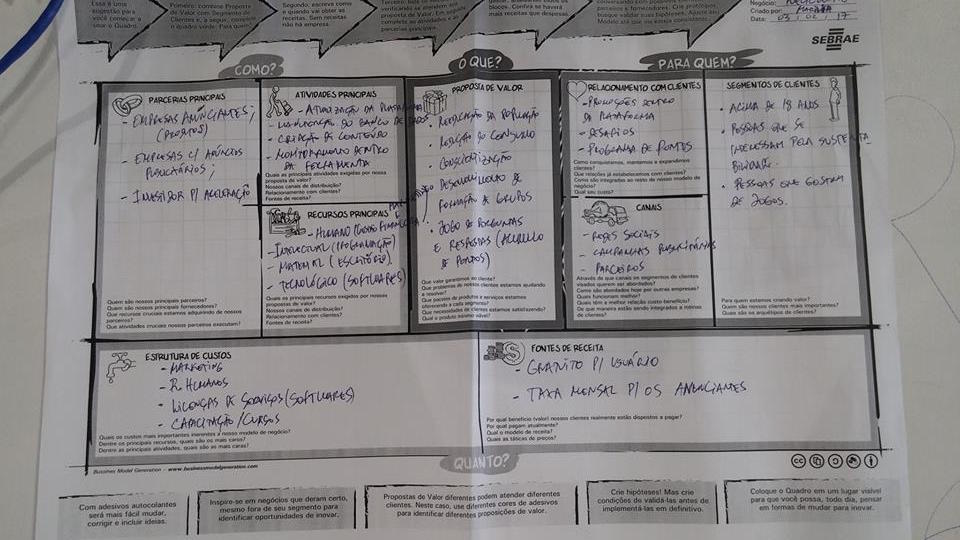 Essa é uma
sugestão para
você começar a
usar o Quadro.
Primeiro: contorne Proposta
de Valor com Segmento de
Clientes e, a seguir, complete
o quadro verde. Para quê?
Segundo: escreva como
e quando vai obter as
receitas. Sem receitas
não há empresa.
verificando se tem sentido a
proposta de Valor. Em seguida,
complete as atividades e as
parcerias principais
blocos. Confira se haverá
mais receitas que despesas.
Negócio:
Criado por:
Data: 03 / 02 / 17
SEBRAE
COMO?
O QUE?
PARA QUEM?
PARCERIAS PRINCIPAIS
- EMPRESAS ANUNCIANTES;
- EMPRESAS C/ ANÚNCIOS
PUBLICITÁRIOS;
- INVESTIDOR P/ ACELERAÇÃO
Quem são nossos principais parceiros?
Quem são nossos principais fornecedores?
Que recursos cruciais estamos adquirindo de nossos
parceiros?
Que atividades cruciais nossos parceiros executam?
ATIVIDADES PRINCIPAIS
- ATUALIZAÇÃO DA PLATAFORMA
- MANUTENÇÃO DO BANCO DE DADOS
- CRIAÇÃO DE CONTEÚDO
- MONITORAMENTO DENTRO
DA FERRAMENTA
Quais as principais atividades exigidas por nossa
proposta de valor?
Nossos canais de distribuição?
Relacionamento com clientes?
Fontes de receita?
RECURSOS PRINCIPAIS
- HUMANO
- INTELECTUAL (PROGRAMAÇÃO)
- MATERIAL (ESCRITÓRIO)
- TECNOLÓGICO (SOFTWARES)
Quais os principais recursos exigidos por nossas
propostas de valor?
Nossos canais de distribuição?
Relacionamento com clientes?
Fontes de receita?
PROPOSTA DE VALOR
DA POPULAÇÃO
REDUÇÃO DO CONSUMO
CONSCIENTIZAÇÃO
DESENVOLVIMENTO DE
FORMAÇÃO DE GRUPOS
JOGO DE PERGUNTAS
E RESPOSTAS (ACÚMULO
DE PONTOS)
Que valor garantimos ao cliente?
Que problemas de nossos clientes estamos ajudando
a resolver?
Que pacotes de produtos e serviços estamos
oferecendo a cada segmento?
Que necessidades de clientes estamos satisfazendo?
Qual o produto mínimo viável?
RELACIONAMENTO COM CLIENTES
- PROMOÇÕES DENTRO
DA PLATAFORMA
- DESAFIOS
- PROGRAMA DE PONTOS
Como conquistamos, mantemos e expandimos
clientes?
Que relações já estabelecemos com clientes?
Como são integradas ao resto de nosso modelo de
negócio?
Qual seu custo?
CANAIS
- REDES SOCIAIS
- CAMPANHAS PUBLICITÁRIAS
- PARCEIROS
Através de que canais os segmentos de clientes
visados querem ser abordados?
Como são abordados hoje por outras empresas?
Quais funcionam melhor?
Quais têm a melhor relação custo-benefício?
De que maneira estão sendo integrados a rotinas
de clientes?
SEGMENTOS DE CLIENTES
• ACIMA DE 18 ANOS
• PESSOAS QUE SE
INTERESSAM PELA SUSTENTA
BILIDADE.
• PESSOAS QUE GOSTAM
DE JOGOS.
Para quem estamos criando valor?
Quem são nossos clientes mais importantes?
Quais são os arquétipos de clientes?
ESTRUTURA DE CUSTOS
- MARKETING
- R. HUMANOS
- LICENÇAS DE SERVIÇOS (SOFTWARES)
- CAPACITAÇÃO/CURSOS
Quais os custos mais importantes inerentes a nosso modelo de negócio?
Dentre os principais recursos, quais são os mais caros?
Dentre as principais atividades, quais são as mais caras?
FONTES DE RECEITA
- GRATUITO P/ USUÁRIO
- TAXA MENSAL P/ OS ANUNCIANTES
Por qual benefício (valor) nossos clientes realmente estão dispostos a pagar?
Por qual pagam atualmente?
Qual o modelo de receita?
Quais as táticas de preços?
Business Model Generation - www.businessmodelgeneration.com
QUANTO?
Com adesivos autocolantes
será mais fácil mudar,
corrigir e incluir ideias.
Inspire-se em negócios que deram certo,
mesmo fora de seu segmento para
identificar oportunidades de inovar.
Propostas de Valor diferentes podem atender diferentes
clientes. Neste caso, use diferentes cores de adesivos
para identificar diferentes proposições de valor.
Crie hipóteses! Mas crie
condições de validá-las antes de
implementá-las em definitivo.
Coloque o Quadro em um lugar visível
para que você possa, todo dia, pensar
em formas de mudar para inovar.